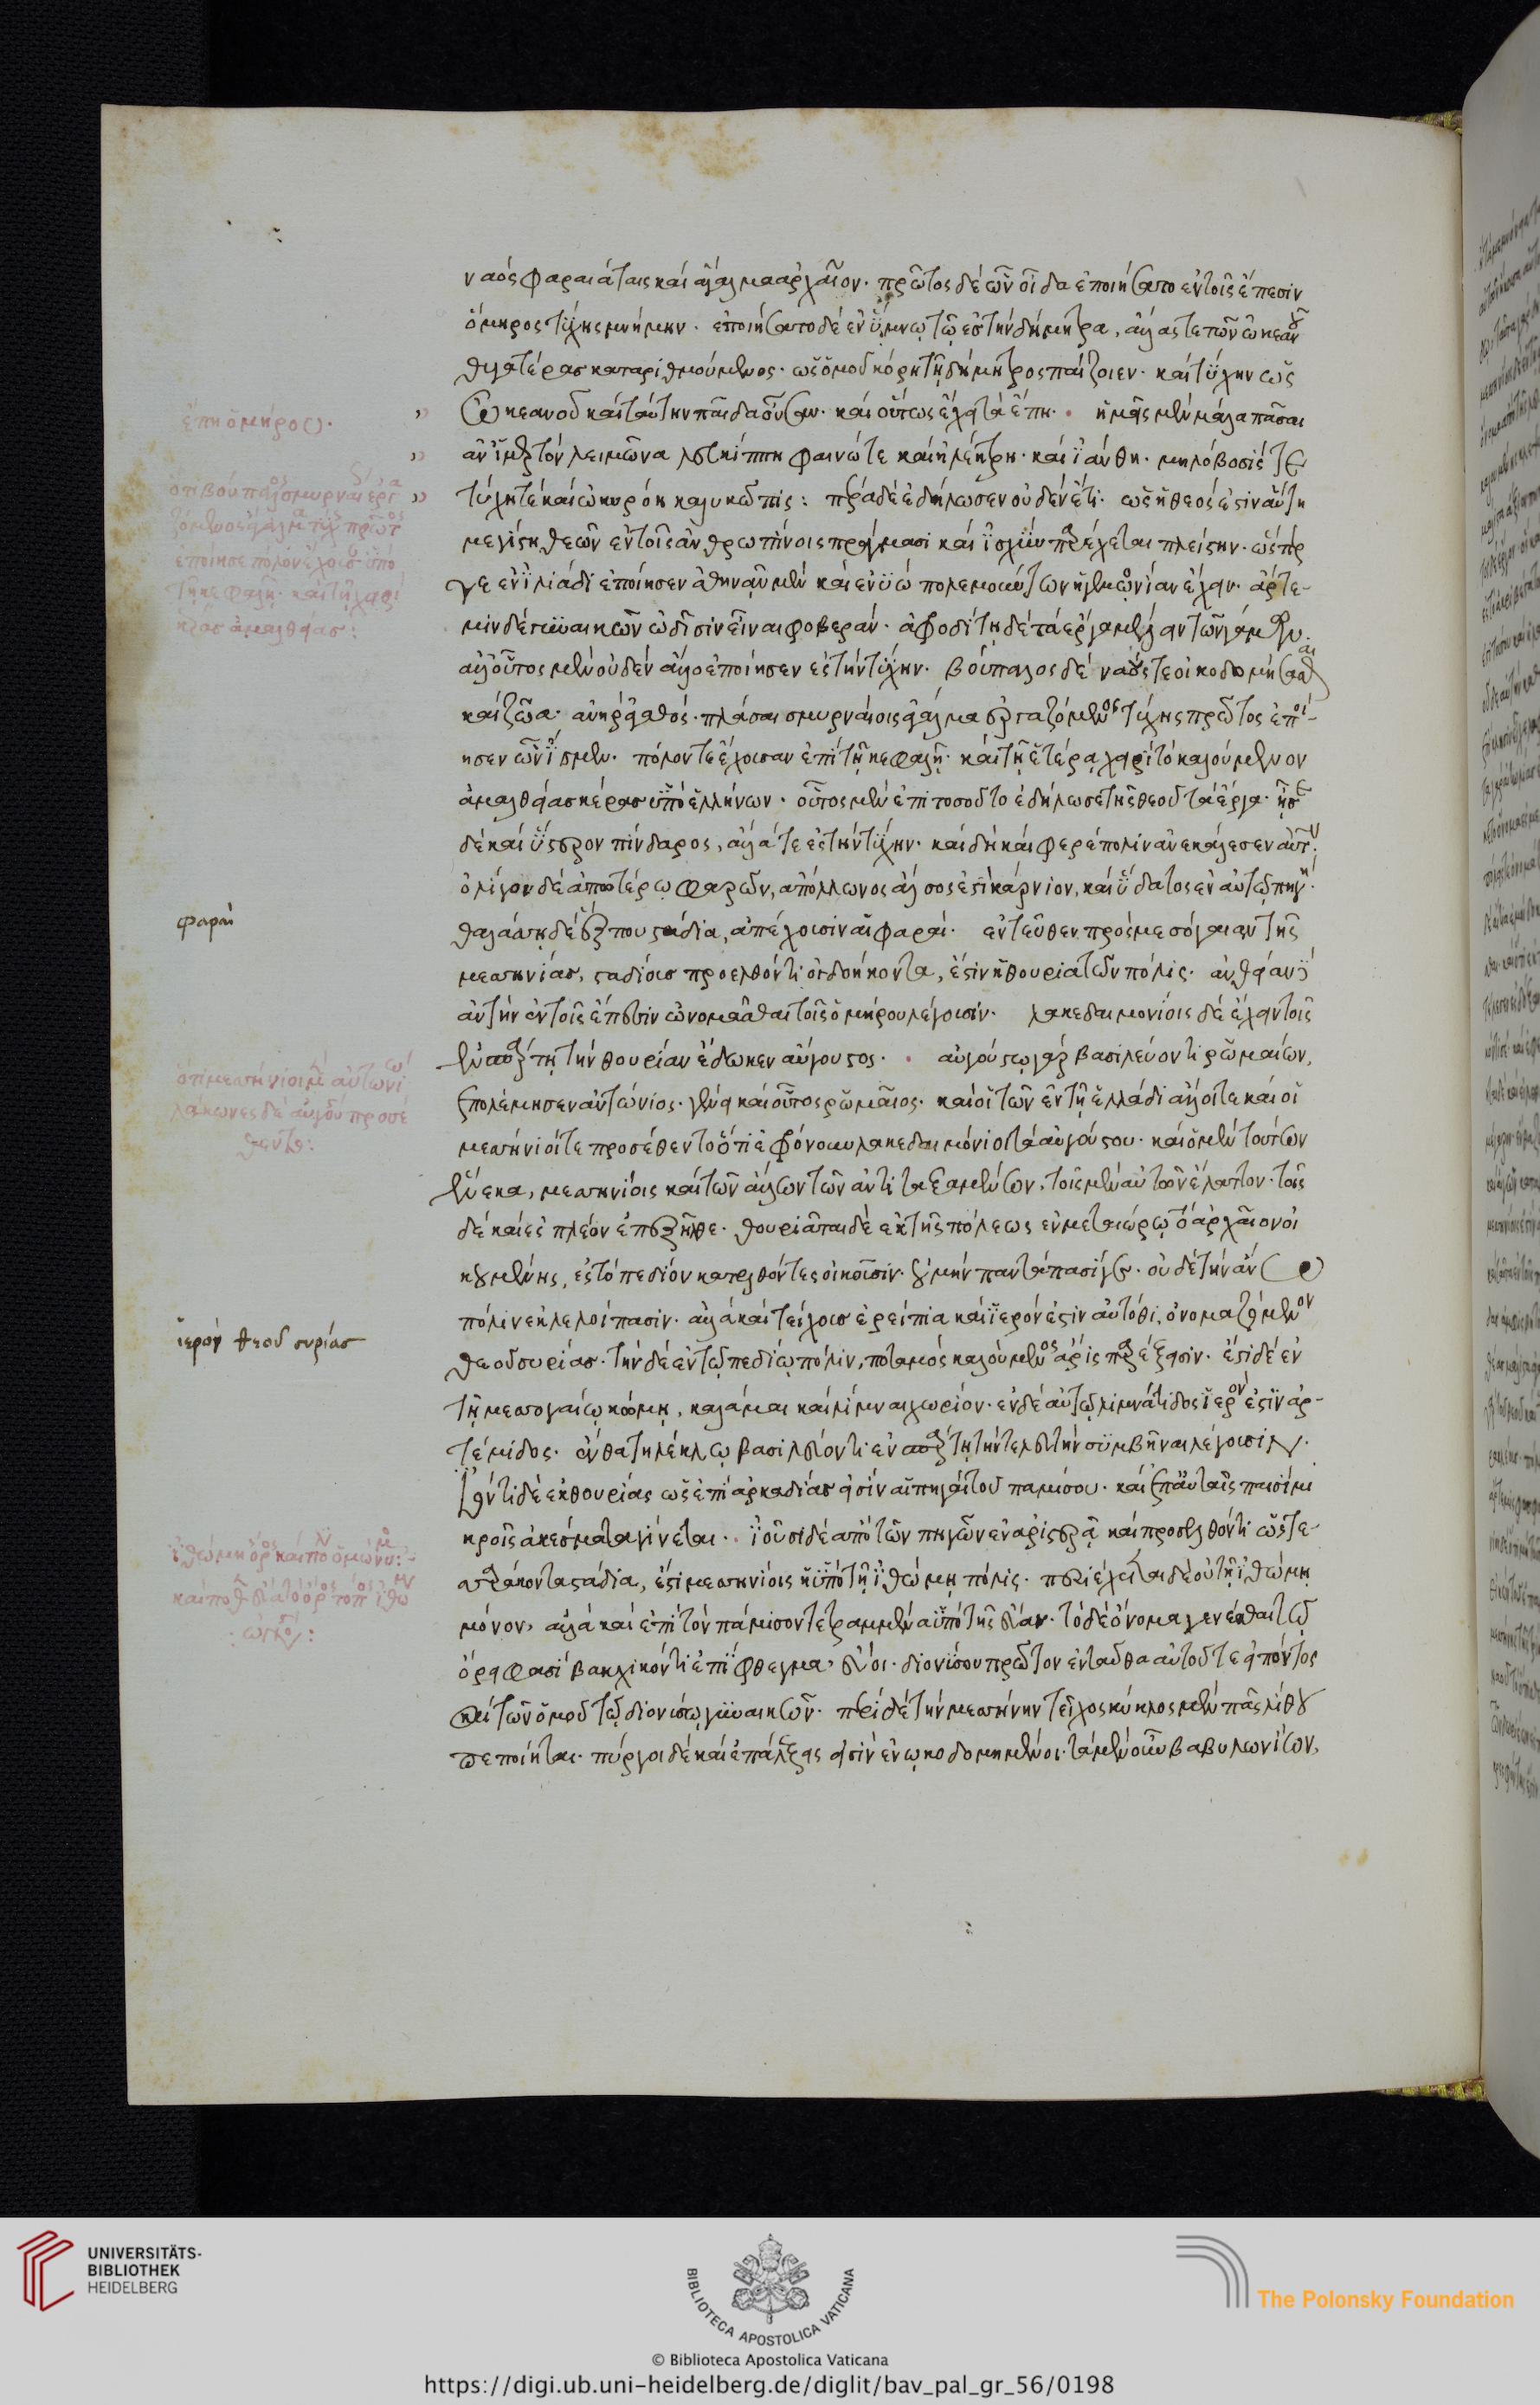 ναός φαραιάταις καὶ ἄγαλμα ἀρχαῖον. πρῶτος δὲ ὧν οἶδα ἐποιήσατο ἐν τοῖς ἔπεσιν
ὅμηρος τύχης μνήμην. ἐποιήσατο δὲ ἐν ὕμνῳ τῷ ἐς τὴν δήμητρα, ἄλλας τε τῶν ὠκεανοῦ
θυγατέρας καταριθμούμενος. ὡς ὁμοῦ κόρῃ τῇ δήμητρος παίζοιεν. καὶ τύχην ὡς
ὠκεανοῦ καὶ ταύτην παῖδα οὖσαν. καὶ οὕτως ἔχει τὰ ἔπη. ἡμεῖς μὲν μάλα πᾶσαι
ἀν ἱμερτὸν λειμῶνα λευκίππη φαινώ τε καὶ ἠλέκτρη. καὶ ἰάνθη. μηλόβοσίς τε
τύχη τε καὶ ὠκυρόη καλυκῶπις: πέρα δὲ ἐδήλωσεν οὐδὲν ἔτι. ὡς ἡ θεός ἐστιν αὕτη
μεγίστη θεῶν ἐν τοῖς ἀνθρωπίνοις πράγμασι καὶ ἰσχὺν παρέχεται πλείστην. ὥσπερ
γε ἐν ἰλιάδι ἐποίησεν ἀθηνᾶν μὲν καὶ ἐνυὼ πολεμούντων ἡγεμονίαν ἔχειν. ἄρτε-
μιν δὲ γυναικῶν ὠδῖσιν εἶναι φοβεράν. ἀφροδίτῃ δὲ τὰ ἔργα μέλειν τῶν γάμων.
ἀλλ' οὗτος μὲν οὐδὲν ἄλλο ἐποίησεν ἐς τὴν τύχην. βούπαλος δὲ ναούς τε οἰκοδομήσασθαι
καὶ ζῶα ἀνὴρ ἀγαθός. πλάσαι σμυρναίοις ἄγαλμα ἐργαζόμενος τύχης πρῶτος ἐποί-
ησεν ὧν ἴσμεν. πόλον τε ἔχουσαν ἐπὶ τῇ κεφαλῇ. καὶ τῇ ἑτέρᾳ χειρὶ τὸ καλούμενον
ἀμαλθείας κέρας ὑπὸ ἑλλήνων. οὗτος μὲν ἐπὶ τοσοῦτο ἐδήλωσε τῆς θεοῦ τὰ ἔργα. ᾖσε
δὲ καὶ ὕστερον πίνδαρος, ἄλλά τε ἐς τὴν τύχην. καὶ δὴ καὶ φερέπολιν ἀνεκάλεσεν αὐτήν.
ὀλίγον δὲ ἀπωτέρω φαρῶν, ἀπόλλωνος ἄλσος ἐστὶ κάρνιον, καὶ ὕδατος ἐν αὐτῷ πηγή.
θαλάσσης δὲ ἓξ που στάδια, ἀπέχουσιν αἱ φαραί. ἐντεῦθεν πρὸς μεσόγαιαν τῆς
μεσσηνίας, σταδίους προελθόντι ὀγδοήκοντα, ἔστιν ἡ θουριατῶν πόλις. ἄνθειαν
αὐτὴν ἐν τοῖς ἔπεσιν ὠνομάσθαι τοῖς ὁμήρου λέγουσιν. λακεδαιμονίοις δὲ ἔχειν τοῖς
ἐν σπάρτῃ τὴν θουρίαν ἔδωκεν αὔγουστος. αὐγούστῳ γὰρ βασιλεύοντι ῥωμαίων,
ἐπολέμησεν ἀντώνιος. γένει καὶ οὗτος ῥωμαῖος. καὶ οἱ τῶν ἐν τῇ ἑλλάδι ἄλλοι τε καὶ οἱ
μεσσήνιοί τε προσέθεντο ὅτι ἐφρόνουν λακεδαιμόνιοι τὰ αὐγούστου. καὶ ὁ μὲν τούτων
ἕνεκα, μεσσηνίοις καὶ τῶν ἄλλων τῶν ἀντιταξαμένων, τοῖς μὲν αὐτῶν ἔλαττον. τοῖς
δὲ καὶ ἐς πλέον ἐπεξῆλθε. θουριᾶται δὲ ἐκ τῆς πόλεως ἐν μετεώρῳ τὸ ἀρχαῖον οἰ
κουμένης, ἐς τὸ πεδίον κατελθόντες οἰκοῦσιν. οὐ μὴν παντάπασί γε. οὐδὲ τὴν ἄνω
πόλιν ἐκλελοίπασιν. ἀλλὰ καὶ τείχους ἐρείπια καὶ ἱερόν ἐστιν αὐτόθι, ὀνομαζόμενον
θεοῦ συρίας. τὴν δὲ ἐν τῷ πεδίῳ πόλιν, ποταμὸς καλούμενος ἄρις παρέξεισιν. ἔστι δὲ ἐν
τῇ μεσογαίῳ κώμη, καλάμαι καὶ λίμναι χωρίον. ἐν δὲ αὐτῷ λιμνάτιδος ἱερόν ἐστιν ἀρ-
τέμιδος. ἔνθα τηλέκλῳ βασιλεύοντι ἐν σπάρτῃ τὴν τελευτὴν συμβῆναι λέγουσιν.
ἰόντι δὲ ἐκ θουρίας ὡς ἐπὶ ἀρκαδίας εἰσὶν αἱ πηγαὶ τοῦ παμίσου. καὶ ἐπ' αὐταῖς παισὶ μι
κροῖς ἀκέσματα γίνεται. ἰοῦσι δὲ ἀπὸ τῶν πηγῶν ἐν ἀριστερᾷ καὶ προελθόντι ὡς τε-
σσαράκοντα στάδια, ἔστι μεσσηνίοις ἡ ὑπὸ τῇ ἰθώμῃ πόλις. περιέχεται δὲ οὐ τῇ ἰθώμῃ
μόνον, ἀλλὰ καὶ ἐπὶ τὸν πάμισον τετραμμένα ὑπὸ τῆς εὔαν. τὸ δὲ ὄνομα γενέσθαι τῷ
ὄρει φασὶ βακχικόν τι ἐπίφθεγμα, εὐοῖ. διονύσου πρῶτον ἐνταῦθα αὐτοῦ τε εἰπόντος
καὶ τῶν ὁμοῦ τῷ διονύσῳ γυναικῶν. περὶ δὲ τὴν μεσσήνην τεῖχος κύκλος μὲν πᾶς λίθου
πεποίηται. πύργοι δὲ καὶ ἐπάλξεις εἰσὶν ἐνῳκοδομημένοι. τὰ μὲν οὖν βαβυλωνίων,
ἔπη ὁμήρου.
φαραί
ἱερὸν θεοῦ συρίας
UNIVERSITÄTS-
BIBLIOTHEK
HEIDELBERG
BIBLIOTECA APOSTOLICA VATICANA
The Polonsky Foundation
© Biblioteca Apostolica Vaticana
https://digi.ub.uni-heidelberg.de/diglit/bav_pal_gr_56/0198